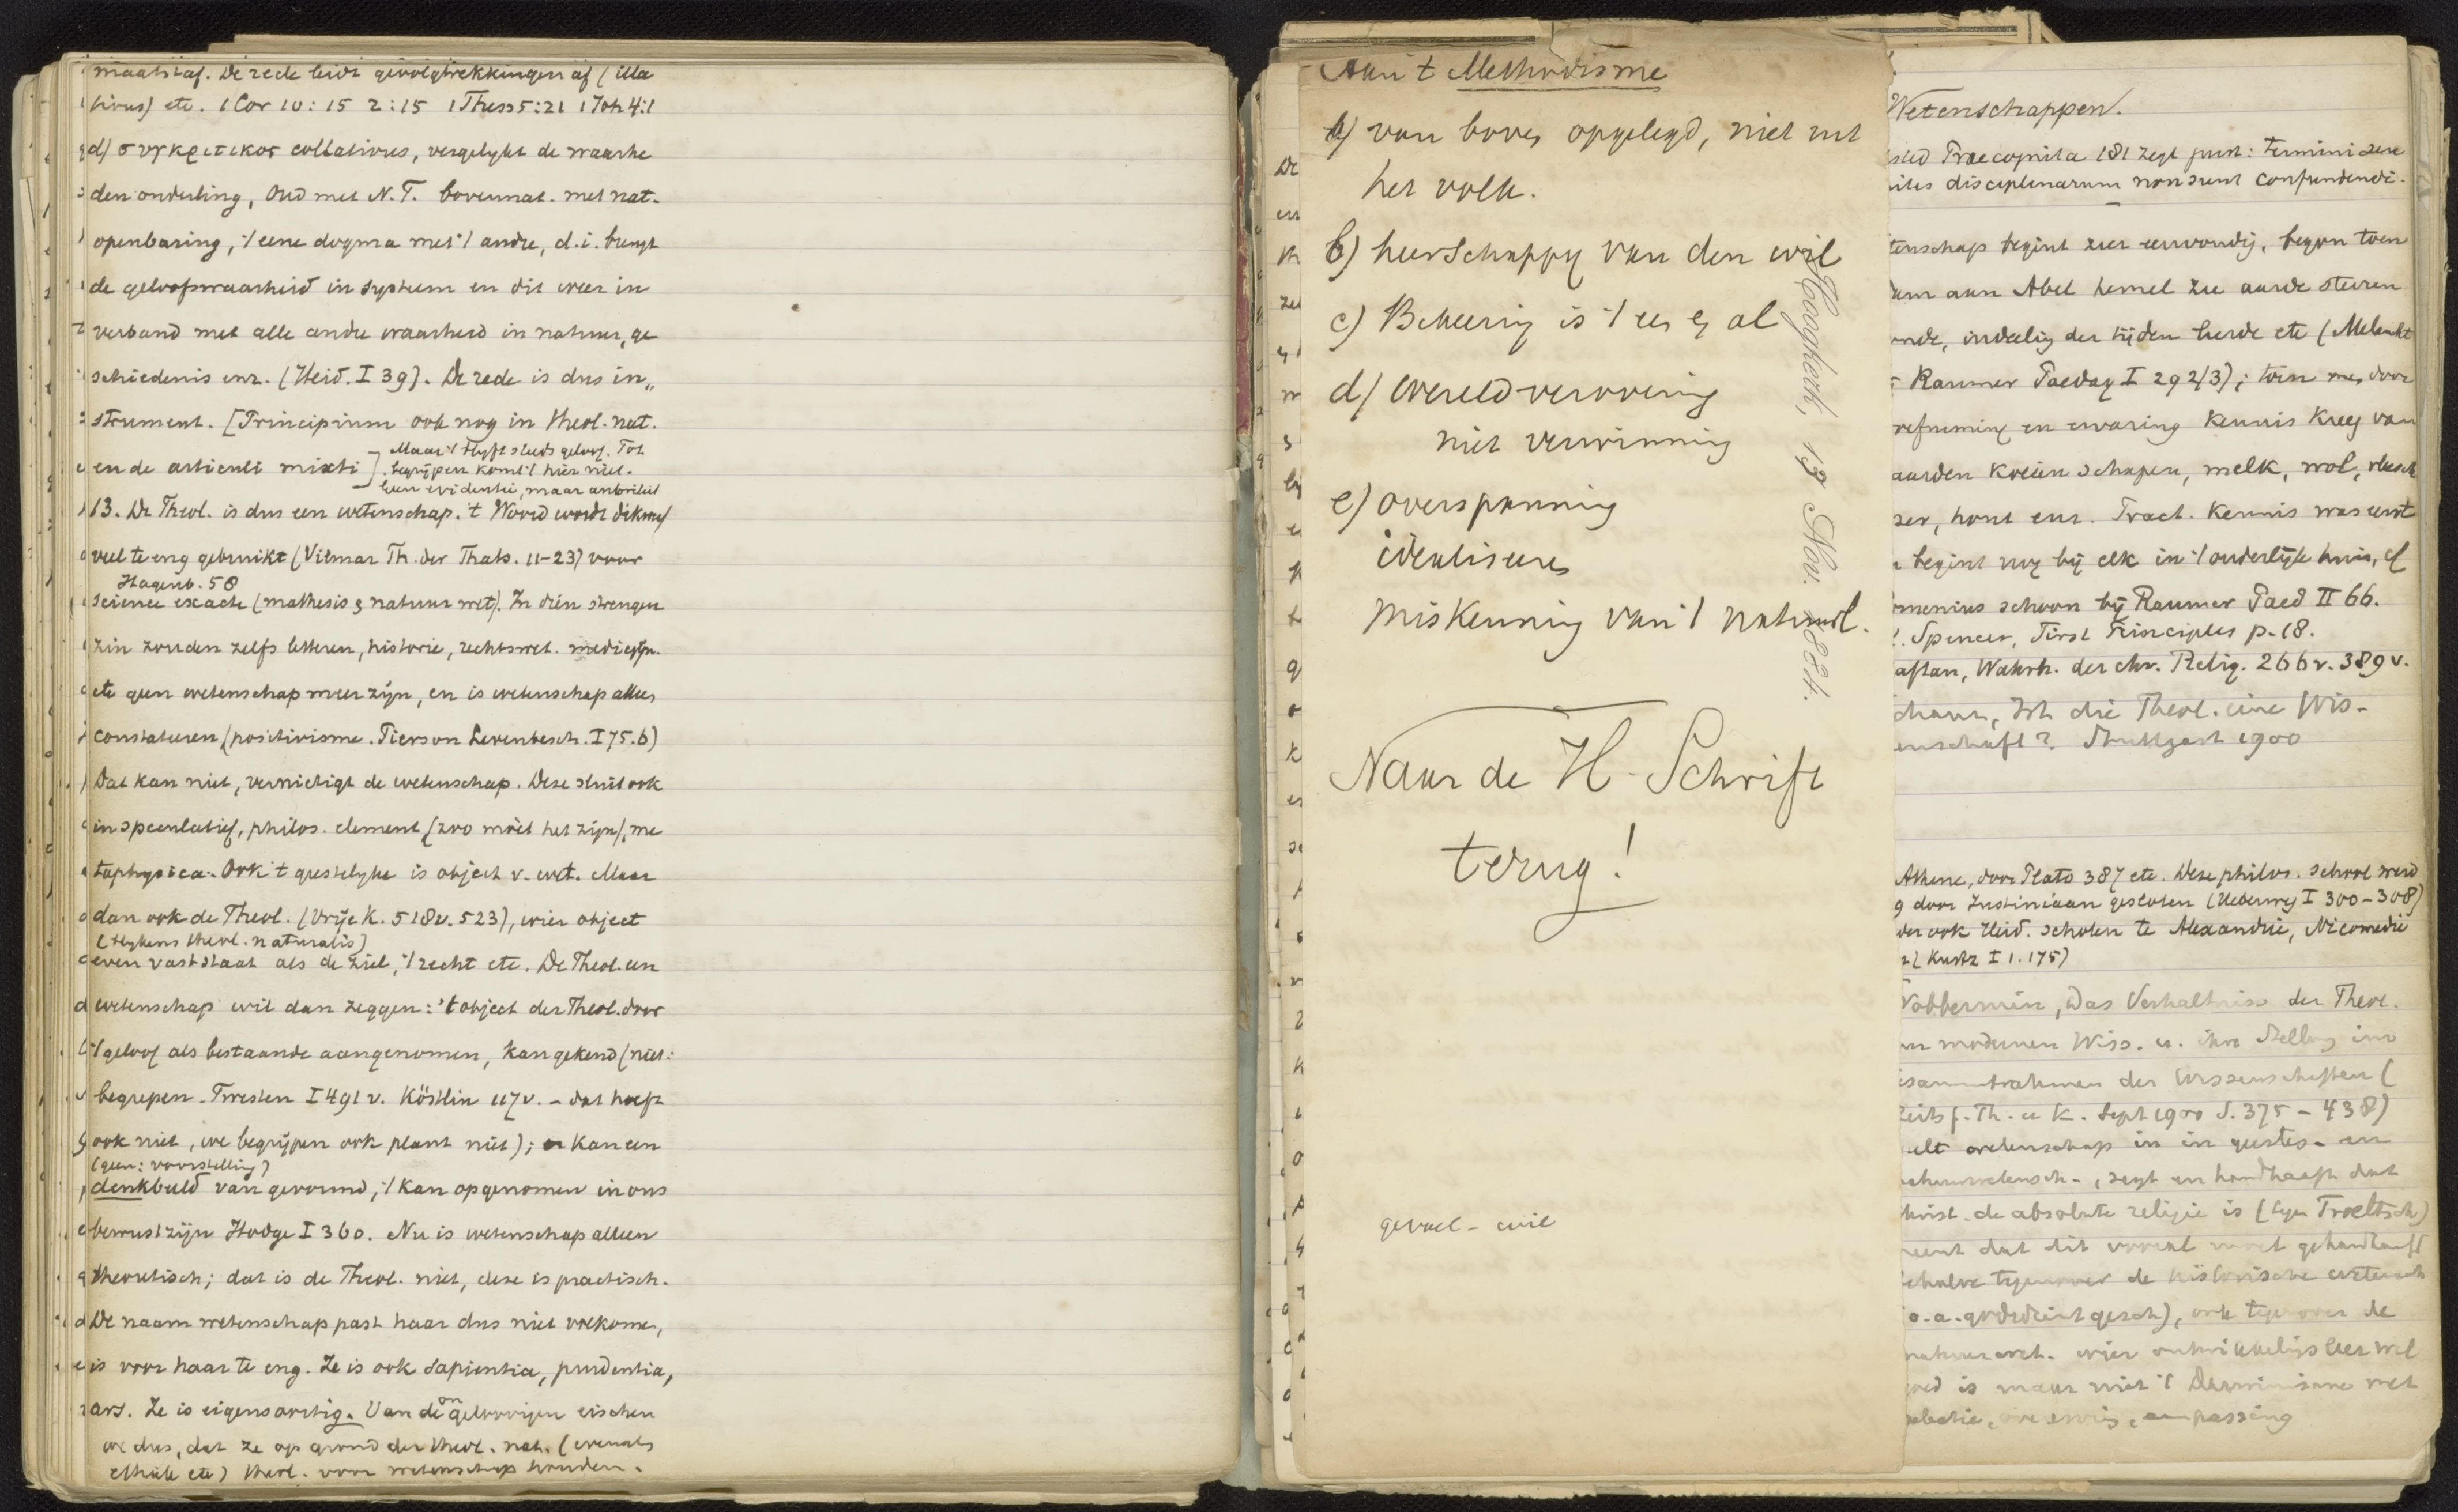 maatstaf. De rede leidt gevolgtrekkingen af (illa
tivus) etc. 1 Cor 10:15 2:15 1 Thess 5:21 1 Joh 4:1
d) συγκριτικος collativus, vergelykt de waarhe
den onderling, Oud met N.T. bovennat. met nat.
openbaring, 't eene dogma met 't andre, d.i. brengt
de geloofswaarheid in systeem en dit weer in
verband met alle andre waarheid in natuur, ge
schiedenis enz. (Heid. I 39). De rede is dus in„
strument. [Principium ook nog in theol. nat.
en de articuli mixti]
Maar 't blyft steeds geloof. Tot
begrijpen komt 't hier niet.
Geen evidentie, maar autoriteit
13. De Theol. is dus een wetenschap. 't Woord wordt dikwijls
veel te eng gebruikt (Vilmar Th. der Thats. 11-23) voor
Hagenb. 58
science exacte (mathesis & natuur wet). In dien strengen
zin zouden zelfs letteren, historie, rechtswet. medicijn.
etc geen wetenschap meer zijn, en is wetenschap alleen
constateeren (positivisme. Pierson Levensbesch. I 75.6)
Dat kan niet, vernietigt de wetenschap. Deze sluit ook
in speculatief, philos. element (zoo móet het zijn), me
taphysica. Ook 't geestelyke is object v. wet. Maar
dan ook de Theol. (Vrije K. 518v. 523), wier object
(blykens theol. naturalis)
even vaststaat als de ziel, 't recht etc. De Theol. een
wetenschap wil dan zeggen: 't object der Theol. door
't geloof als bestaande aangenomen, kan gekend (niet:
begrepen. Twesten I 491 v. Köstlin 117 v. - dat hoeft
ook niet, we begrijpen ook plant niet); er kan een
(geen: voorstelling)
denkbeeld van gevormd, 't kan opgenomen in ons
bewustzijn Hodge I 360. Nu is wetenschap alleen
theoretisch; dat is de Theol. niet, deze is practisch.
De naam wetenschap past haar dus niet volkomen,
is voor haar te eng. Ze is ook sapientia, prudentia,
ars. Ze is eigensoortig. Van de ongeloovigen eischen
we dus, dat ze op grond der theol. nat. (evenals
ethiek etc) theol. voor wetenschap houden.
Aan 't Methodisme
a) van boven opgelegd, niet uit
het volk.
b) heerschappy van den wil
c) Bekeering is 't een & al
d) wereldverovering
niet verwinning
e) overspanning
idealiseren
miskenning van 't natuurl.
Naar de H. Schrift
terug!
gevoel - wil
13 Nov. 1881.
Wetenschappen.
Praecognita 181 zegt juist: termini sere
disciplinarum non sunt confundendi.
tenschap begint zeer eenvoudig, begon toen
aan Abel hemel zee aarde sterren
indeeling der tijden leerde etc (Melancht
Raumer Paedag I 292/3); toen men door
refnening en ervaring kennis kreeg van
aarden koeien schapen, melk, wol, vleesch
hout enz. Pract. kennis was eerst
begint nog bij elk in 't ouderlijke huis, cf
menius schoon bij Raumer Paed II 66.
Spencer, First Principles p. 18.
aftan, Wahrh. der chr. Relig. 266v. 389v.
Ist die Theol. eine Wis-
enschaft? Stuttgart 1900
Athene, door Plato 387 etc. Deze philos. school werd
9 door Justiniaan gesloten (Ueberweg I 300-308)
ook Heid. scholen te Alexandrie, Nicomedie
(Kurtz I 1. 175)
Wobbermin, Das Verhältniss der Theol.
modernen Wiss. u. ihre Stellung im
esammtrahmen der Wissenschaften (
Zeits f. Th. u K. Sept 1900 S. 375 - 438)
eelt wetenschap in in geestes- en
zegt en handhaaft dat
Christ. de absolute religie is (tegen Troeltsch)
meent dat dit vooral moet gehandhaafd
tegenover de historische wetensch
o.a. godsdienstgesch), ook tegenover de
natuurwet. wier ontwikkelingsleer wel
goed is maar niet 't Darwinisme met
selectie, aanpassing